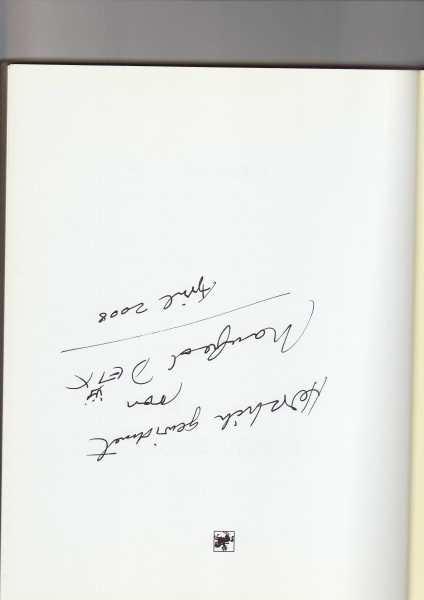 Herzlich gewidmet
von
Manfred DEIX
April 2008